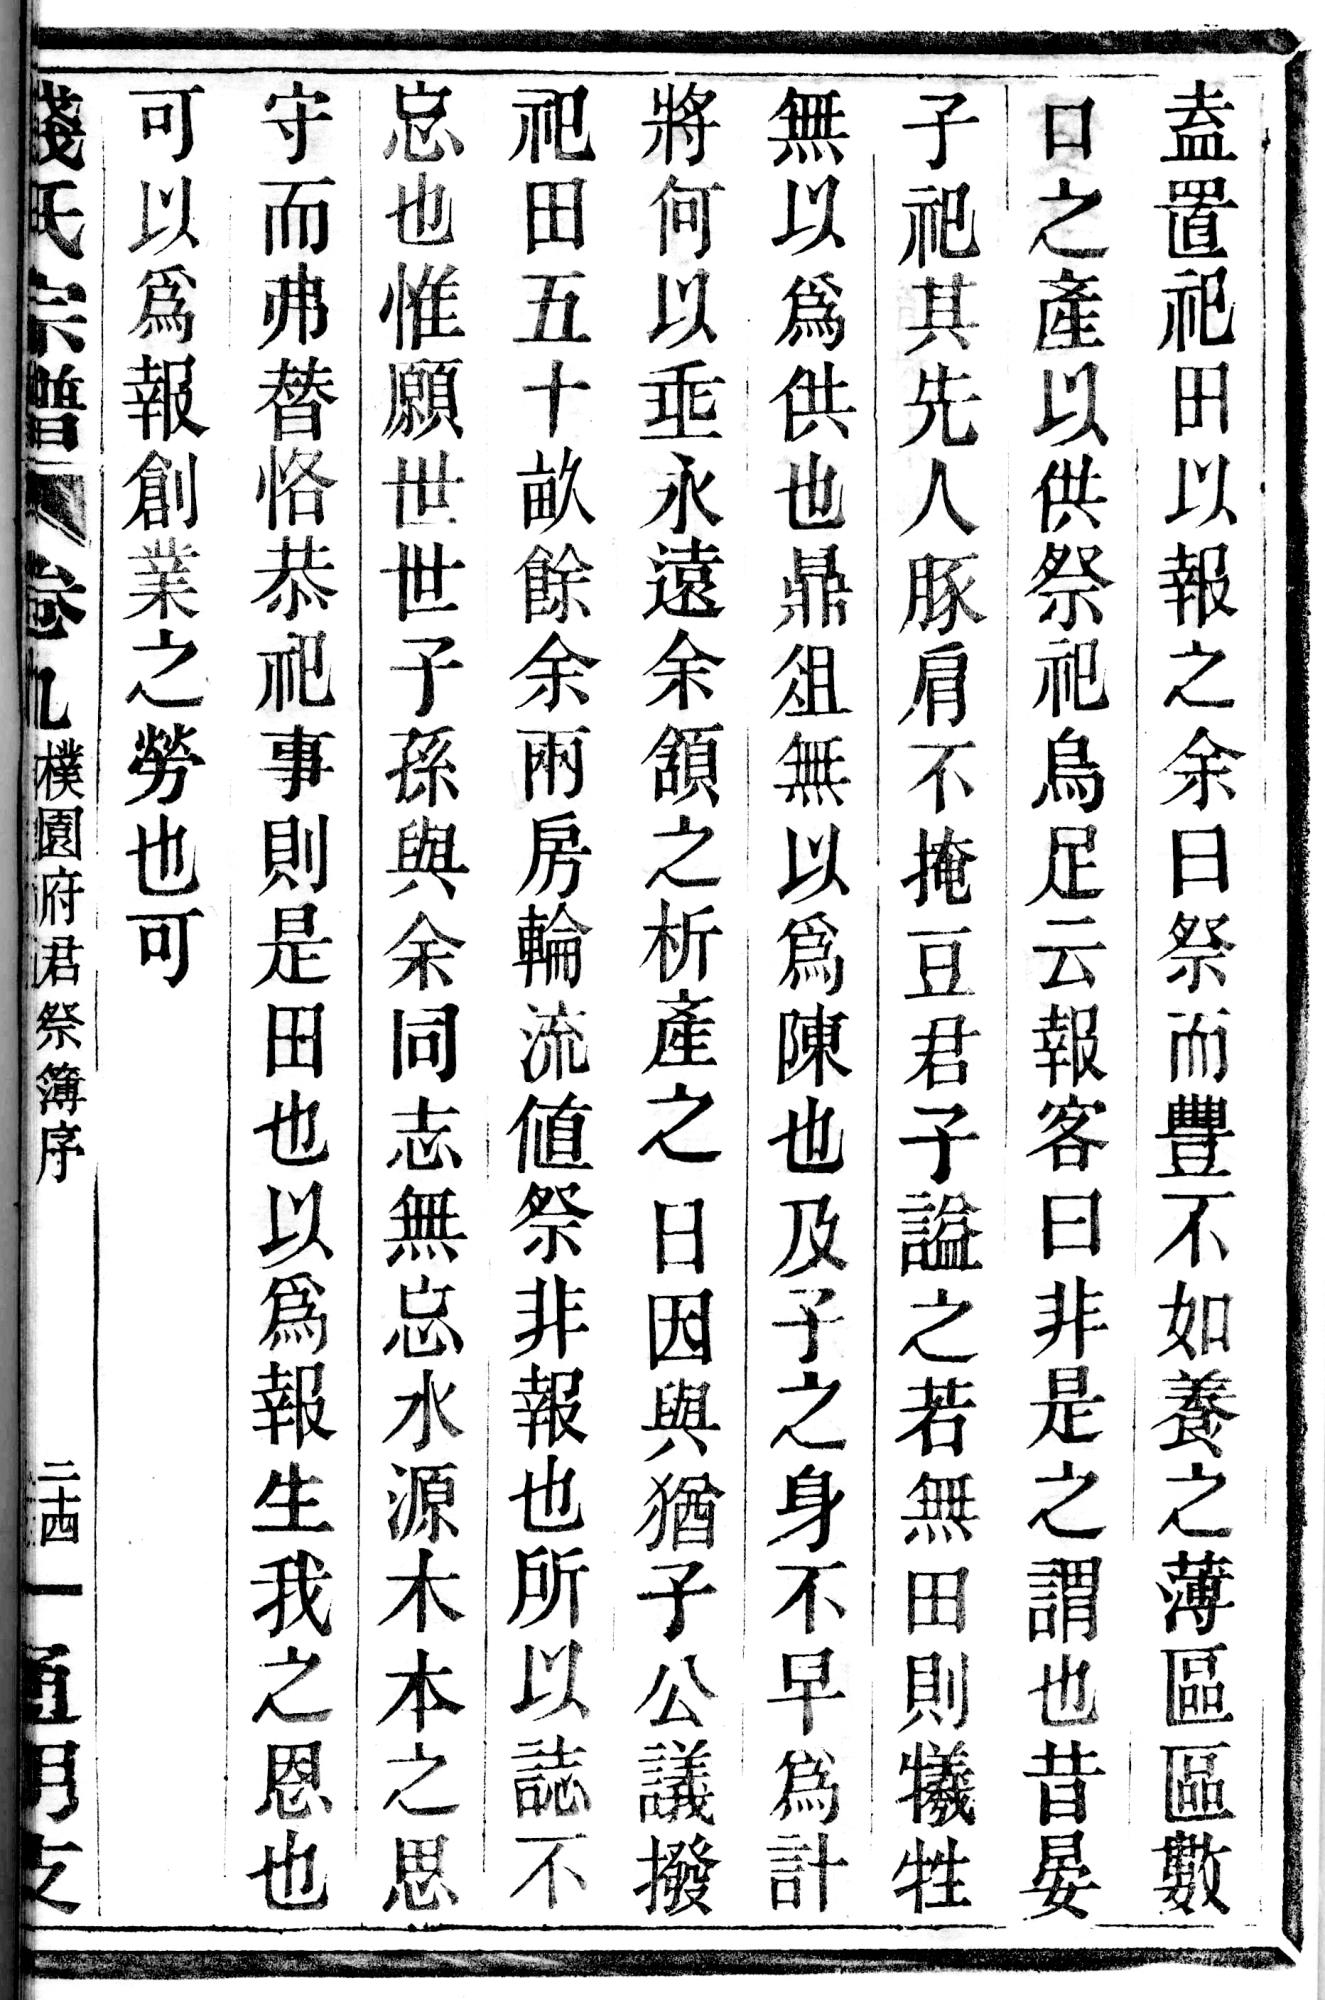 盍置祀田以報之余曰祭而豐不如養之薄區區數
口之產以供祭祀烏足云報客曰非是之謂也昔晏
子祀其先人豚肩不掩豆君子謚之若無田則犧牲
無以爲供也鼎俎無以爲陳也及子之身不早爲計
將何以垂永遠余頷之析產之日因與猶子公議撥
祀田五十畝餘余兩房輪流値祭非報也所以誌不
忘也惟願世世子孫與余同志無忘水源木本之思
守而弗替恪恭祀事則是田也以爲報生我之恩也
可以爲報創業之勞也可
錢氏宗譜 卷九 樸園府君祭簿序 二十四 通明支